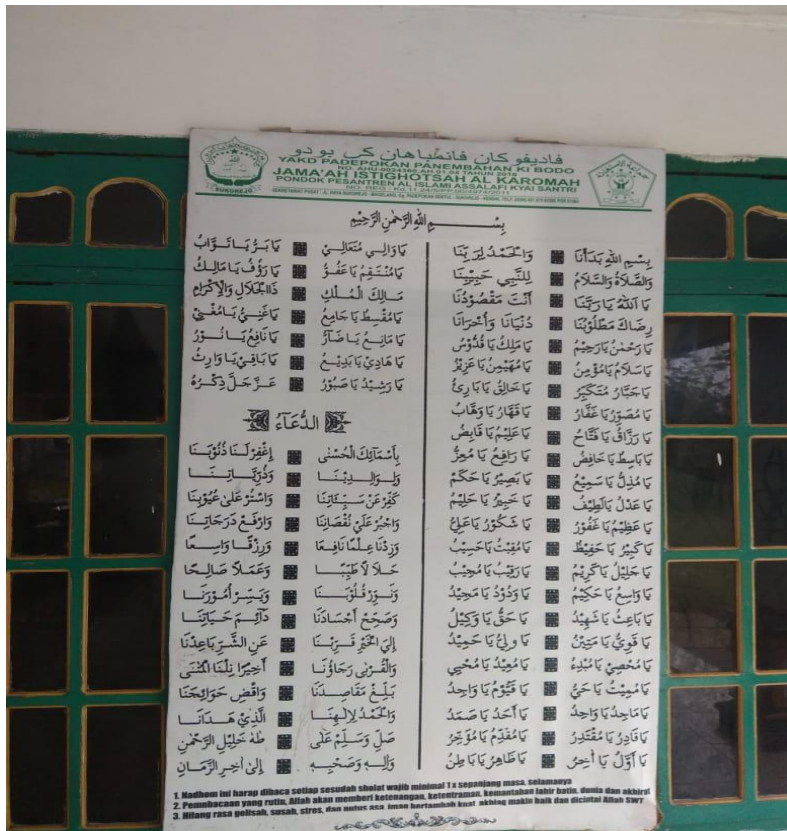 فاديفوكان فانمباهان كي بودو
YAKD PADEPOKAN PANEMBAHAN KI BODO
JAMA'AH ISTIGHOTSAH AL KAROMAH
PONDOK PESANTREN AL ISLAMI ASSALAFI KYAI SANTRI
SUKOREJO
بِسْمِ اللهِ الرَّحْمٰنِ الرَّحِيْمِ
بِسْمِ اللهِ بَدَأْنَا وَالْحَمْدُ لِرَبِّنَا
وَالصَّلَاةُ وَالسَّلَامُ لِلنَّبِي حَبِيْبِنَا
يَا اَللهُ يَا رَبَّنَا أَنْتَ مَقْصُوْدُنَا
رِضَاكَ مَطْلُوْبُنَا دُنْيَانَا وَأُخْرَانَا
يَا رَحْمٰنُ يَا رَحِيْمُ يَا مَلِكُ يَا قُدُّوْسُ
يَا سَلَامُ يَا مُؤْمِنُ يَا مُهَيْمِنُ يَا عَزِيْزُ
يَا جَبَّارُ مُتَكَبِّرُ يَا خَالِقُ يَا بَارِئُ
يَا مُصَوِّرُ يَا غَفَّارُ يَا قَهَّارُ يَا وَهَّابُ
يَا رَزَّاقُ يَا فَتَّاحُ يَا عَلِيْمُ يَا قَابِضُ
يَا بَاسِطُ يَا خَافِضُ يَا رَافِعُ يَا مُعِزُّ
يَا مُذِلُّ يَا سَمِيْعُ يَا بَصِيْرُ يَا حَكَمُ
يَا عَدْلُ يَا لَطِيْفُ يَا خَبِيْرُ يَا حَلِيْمُ
يَا عَظِيْمُ يَا غَفُوْرُ يَا شَكُوْرُ يَا عَلِيُّ
يَا كَبِيْرُ يَا حَفِيْظُ يَا مُقِيْتُ يَا حَسِيْبُ
يَا جَلِيْلُ يَا كَرِيْمُ يَا رَقِيْبُ يَا مُجِيْبُ
يَا وَاسِعُ يَا حَكِيْمُ يَا وَدُوْدُ يَا مَجِيْدُ
يَا بَاعِثُ يَا شَهِيْدُ يَا حَقُّ يَا وَكِيْلُ
يَا قَوِيُّ يَا مَتِيْنُ يَا وَلِيُّ يَا حَمِيْدُ
يَا مُحْصِيْ يَا مُبْدِءُ يَا مُعِيْدُ يَا مُحْيِي
يَا مُمِيْتُ يَا حَيُّ يَا قَيُّوْمُ يَا وَاحِدُ
يَا مَاجِدُ يَا وَاحِدُ يَا أَحَدُ يَا صَمَدُ
يَا قَادِرُ يَا مُقْتَدِرُ يَا مُقَدِّمُ يَا مُؤَخِّرُ
يَا أَوَّلُ يَا أٰخِرُ يَا ظَاهِرُ يَا بَاطِنُ
يَا وَالِي مُتَعَالِيْ يَا بَرُّ يَا تَوَّابُ
يَا مُنْتَقِمُ يَا عَفُوُّ يَا رَؤُفُ يَا مَالِكُ
مَالِكَ الْمُلْكِ ذَا الْجَلَالِ وَالْإِكْرَامِ
يَا مُقْسِطُ يَا جَامِعُ يَا غَنِيُّ يَا مُغْنِيْ
يَا مَانِعُ يَا ضَآرُّ يَا نَافِعُ يَا نُوْرُ
يَا هَادِيْ يَا بَدِيْعُ يَا بَاقِيْ يَا وَارِثُ
يَا رَشِيْدُ يَا صَبُوْرُ عَزَّ جَلَّ ذِكْرُهُ
الدُّعَآءُ
بِأَسْمَائِكَ الْحُسْنٰى إِغْفِرْ لَنَا ذُنُوْبَنَا
وَلِوَالِدِيْنَا وَذُرِّيَّاتِنَا
كَفِّرْ عَنْ سَيِّئَاتِنَا وَاسْتُرْ عَلٰى عُيُوْبِنَا
وَاجْبُرْ عَلٰى نُقْصَانِنَا وَارْفَعْ دَرَجَاتِنَا
وَزِدْنَا عِلْمًا نَافِعًا وَرِزْقًا وَاسِعًا
حَلَالًا طَيِّبًا وَعَمَلًا صَالِحًا
وَنَوِّرْ قُلُوْبَنَا وَيَسِّرْ أُمُوْرَنَا
وَصَحِّحْ أَجْسَادَنَا دَآئِمَ حَيَاتِنَا
إِلَى الْخَيْرِ قَرِّبْنَا عَنِ الشَّرِّ بَاعِدْنَا
وَالْقُرْبٰى رَجَاؤُنَا أَخِيْرًا نِلْنَا الْمُنٰى
بَلِّغْ مَقَاصِدَنَا وَاقْضِ حَوَائِجَنَا
وَالْحَمْدُ لِإِلٰهِنَا الَّذِيْ هَدَانَا
صَلِّ وَسَلِّمْ عَلٰى طٰهَ خَلِيْلِ الرَّحْمٰنِ
وَاٰلِهِ وَصَحْبِهِ إِلٰى أٰخِرِ الزَّمَانِ
1. Nadhom ini harap dibaca setiap sesudah sholat wajib minimal 1 x sepanjang masa, selamanya
2. Pembacaan yang rutin, Allah akan memberi ketenangan, ketentraman, kemantaban lahir batin, dunia dan akhirat
3. Hilang rasa gelisah, susah, stres, dan putus asa, iman bertambah kuat, akhlaq makin baik dan dicintai Allah SWT